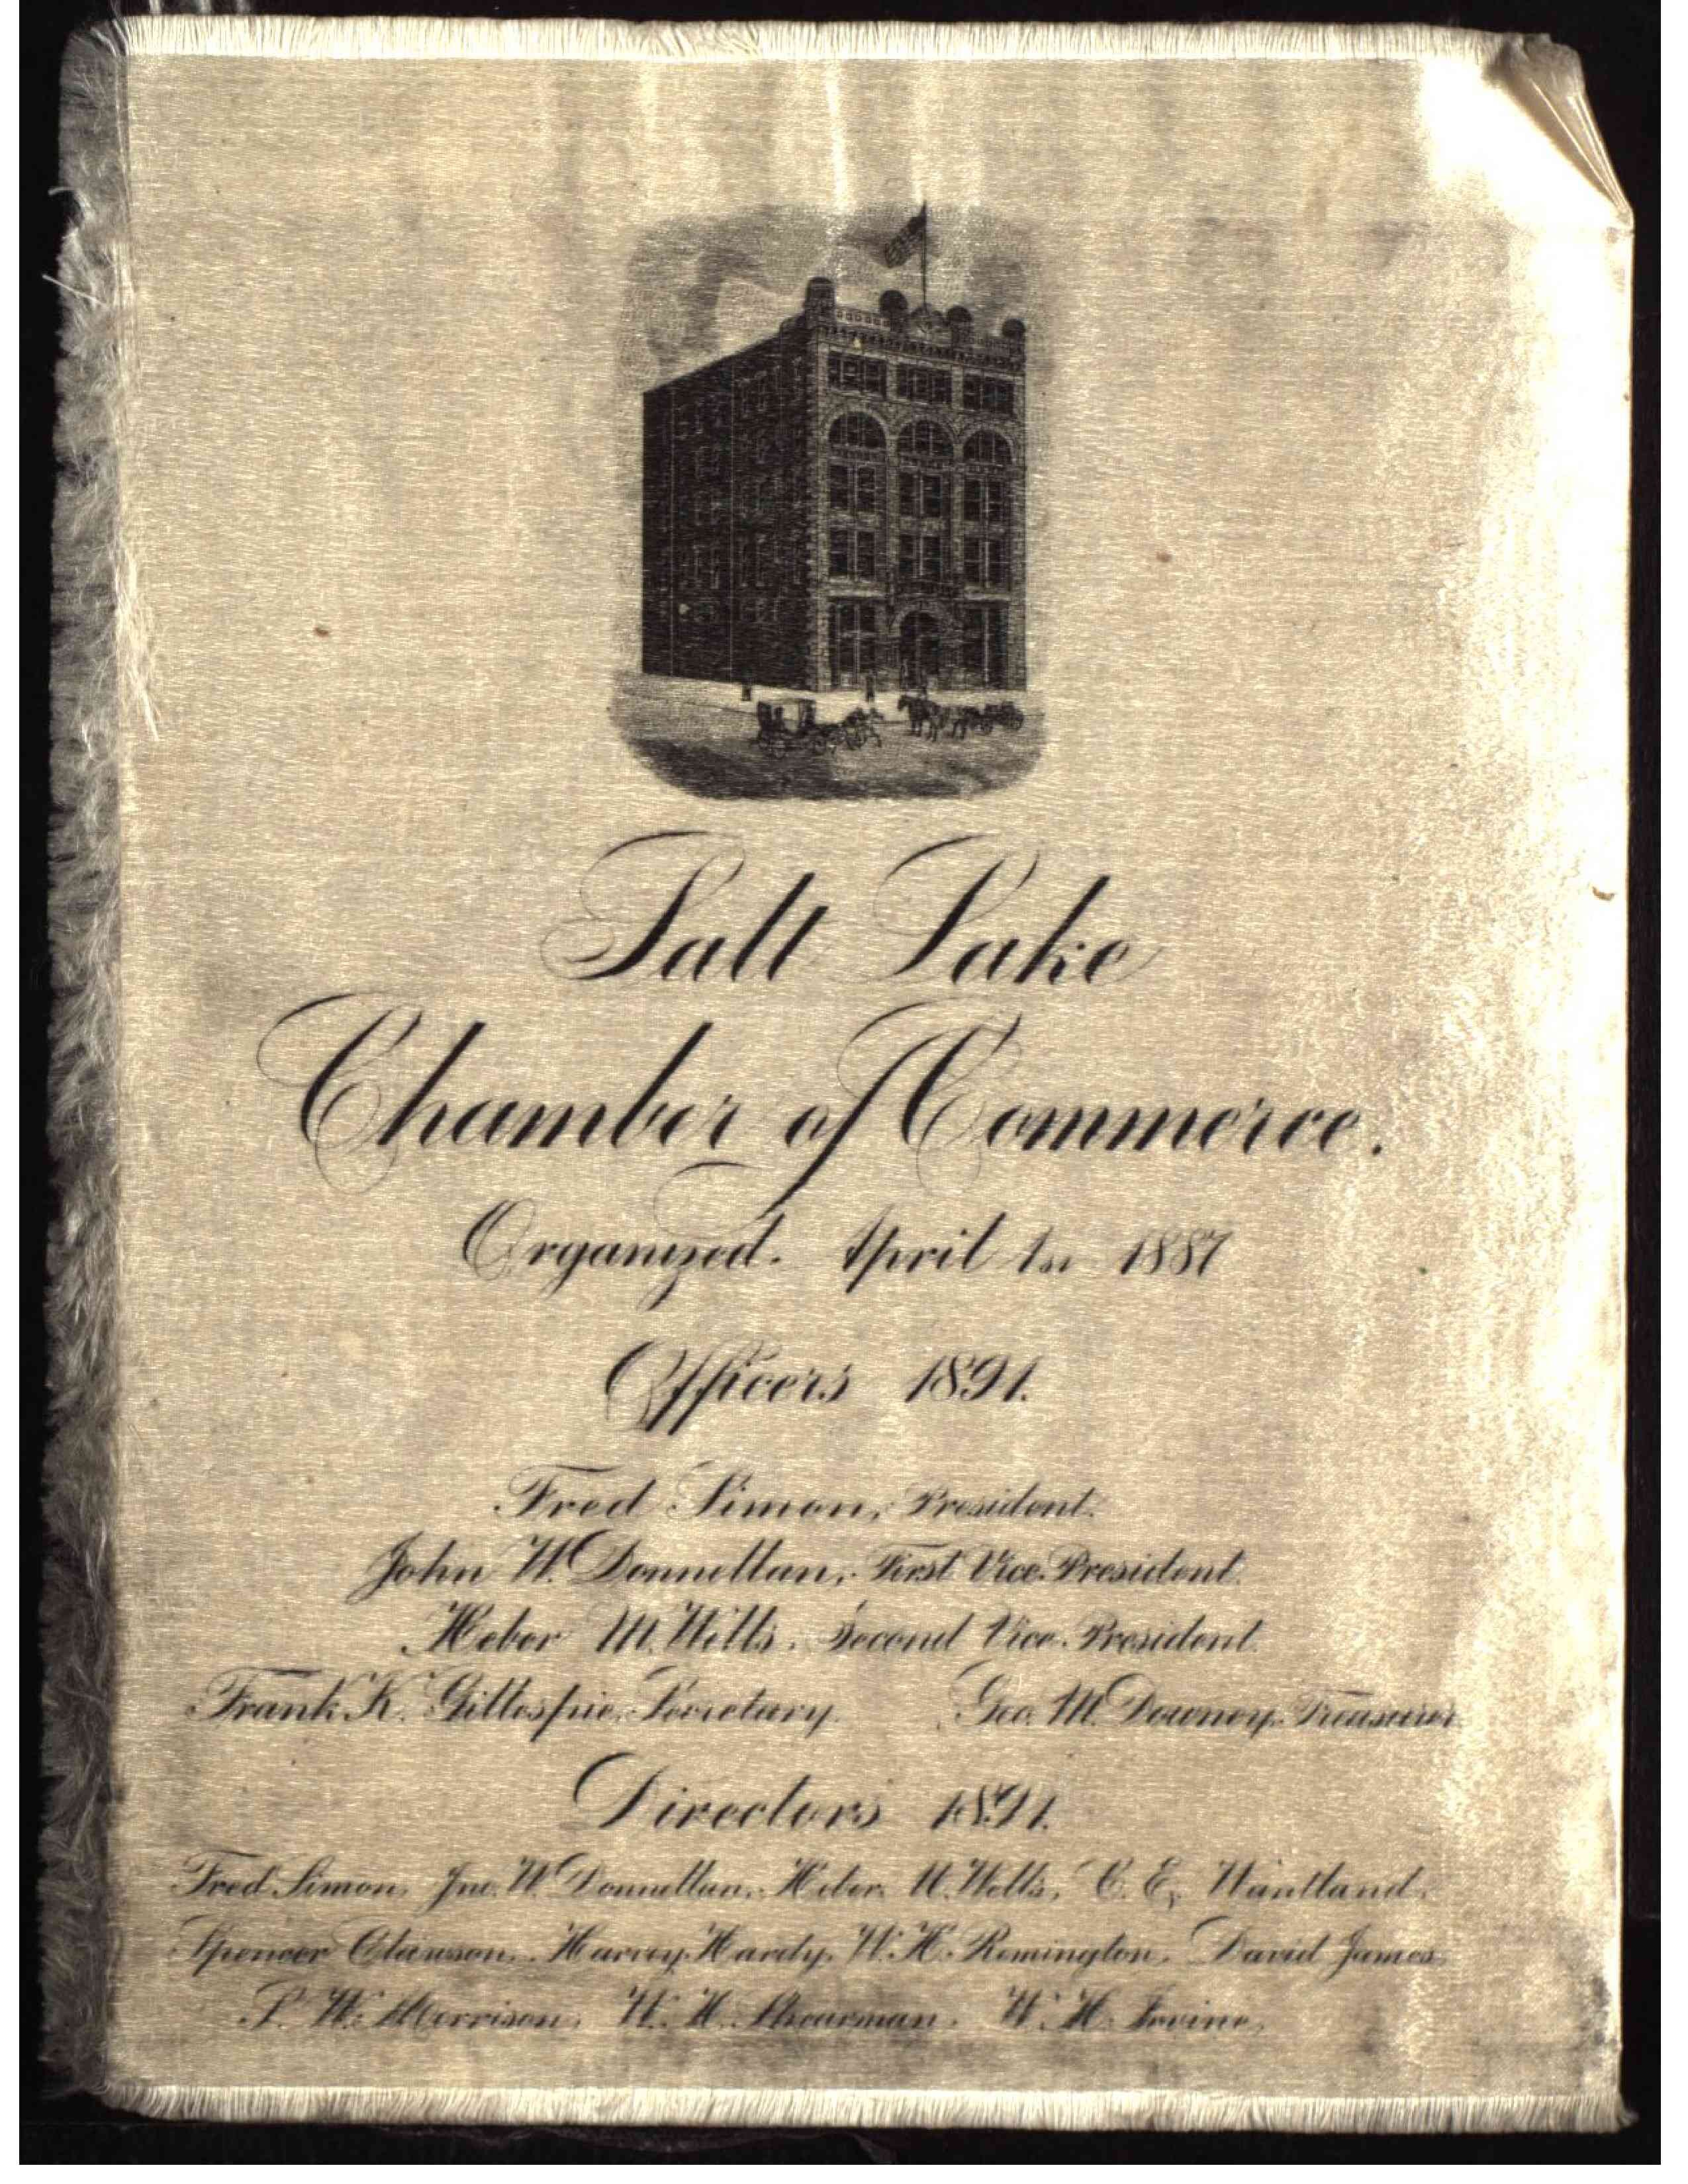 Salt Lake
Chamber of Commerce.
Organized. April 1st 1887
Officers 1891.
Fred Simon, President.
John W. Donnellan, First Vice. President.
Heber M. Wells. Second Vice. President.
Frank K. Gillespie. Secretary. Geo. M. Downey. Treasurer.
Directors 1891.
Fred Simon, Jno. W. Donnellan, Heber M. Wells, C. E. Wantland.
Spencer Clawson. Harvey Hardy. W. H. Remington. David James
W. Morrison. W. H. Shearman. W. H. Irvine.